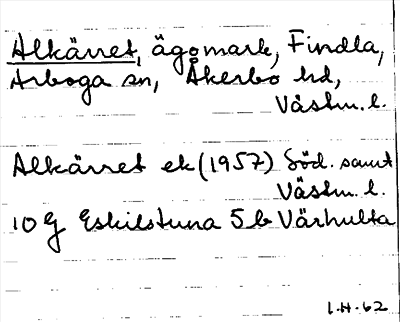 Alkärret, ägomark, Findla,
Arboga sn, Åkerbo hd,
Västm. l.
Alkärret ek (1957) Söd. samt
Västm. l.
10 G Eskilstuna 5 b Värhulta
1.H.62